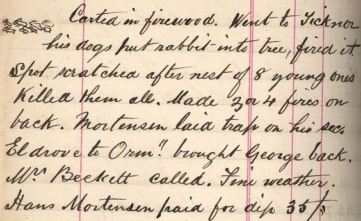 Carted in firewood. Went to Ticknor
his dogs put rabbit into tree, fired it
Spot scratched after nest of 8 young ones
Killed them all. Made 2 or 4 fires on
back. Mortensen laid trap on his sec.
El drove to Orm<sup>d</sup>. brought George back.
Mrs Beckett called. Fine weather.
Hans Mortensen paid for dip 35/-